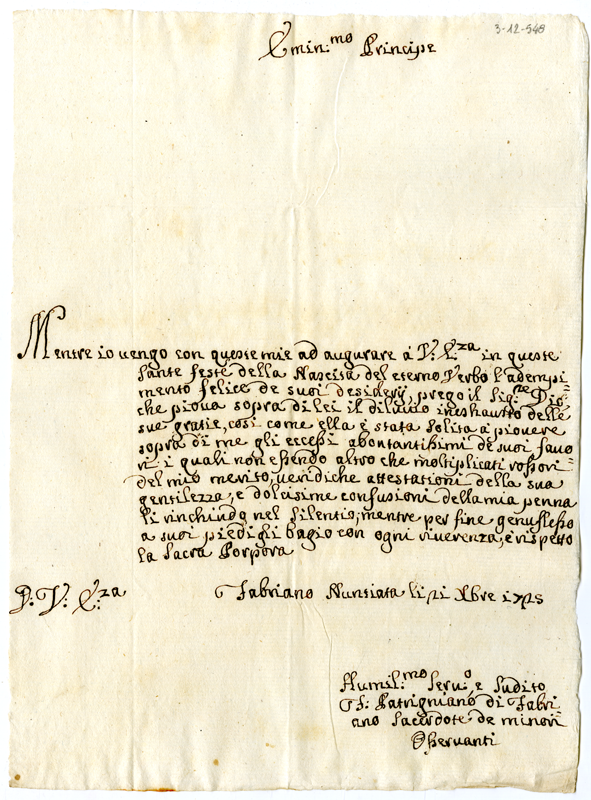 3-12-548
Emin:mo Principe
Mentre io vengo con queste mie ad augurare á V: E:za in queste
sante feste della Nascita del eterno Verbo l'adempi=
mento felice de suoi desiderij, prego il Sig:re Dio:
che piova sopra di lei il diluvio ineshautto delle
sue gratie, cosi come ella è stata solita a piovere
sopra di me gli eccessi abontantissimi de suoi favo
ri i quali non essendo altro che moltiplicati rossori=
del mio merito, veridiche attestationi della sua
gentilezza, e dolcisime confusioni della mia penna
li rinchiudo nel silentio; mentre per fine genuflesso
a suoi piedi gli bagio con ogni riverenza, e rispetto
la Sacra Porpora
D: V: E:za
Fabriano Nuntiata li Xbre
Humil:mo Seru:o, e Sudito
F: Patrigniano di Fabri=
ano Sacerdote de minori
Osservanti